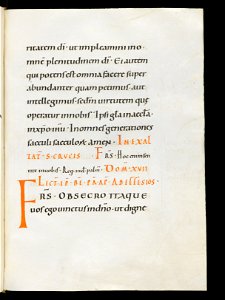 ritatem di · ut impleamini ino
mne plenitudinem di · Ei autem
qui potens est omnia facere super
abundanter quam petimus aut
intellegimus · sedm virtutem que
operatur innobis · Ipsi gla inaecla
inxpo ihu · Inomnes generationes
saeculi saeculorum amen · IN EXAL
TAT · S · CRUCIS FRS · Hoc enim sen
tite in vobis · DOM XVII
LECT EPI B PAVLI AP AD EFESIOS
FRS · OBSECRO ITAQUE
vos ego vinctus indno · ut digne